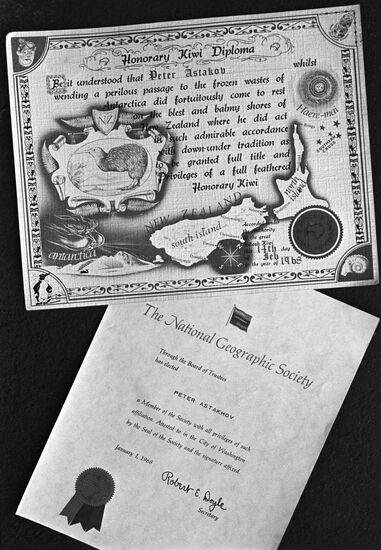 Honorary Kiwi Diploma
Be it understood that Peter Astakov whilst
wending a perilous passage to the frozen wastes of
Antarctica did fortuitously come to rest
on the blest and balmy shores of
Zealand where he did act
in such admirable accordance
with down-under tradition as
to be granted full title and
Privileges of a full feathered
Honorary Kiwi
NZ
Haere-mai
CROSS
NEW ZEALAND
north island
south-island
antarctica
14th day
Feb
the year of 1968
The National Geographic Society
Through the Board of Trustees
has elected
PETER ASTAKHOV
a Member of the Society with all privileges of such
affiliation. Attested to in the City of Washington
by the Seal of the Society and the signature affixed.
January 1, 1969
Robert E. Doyle
Secretary